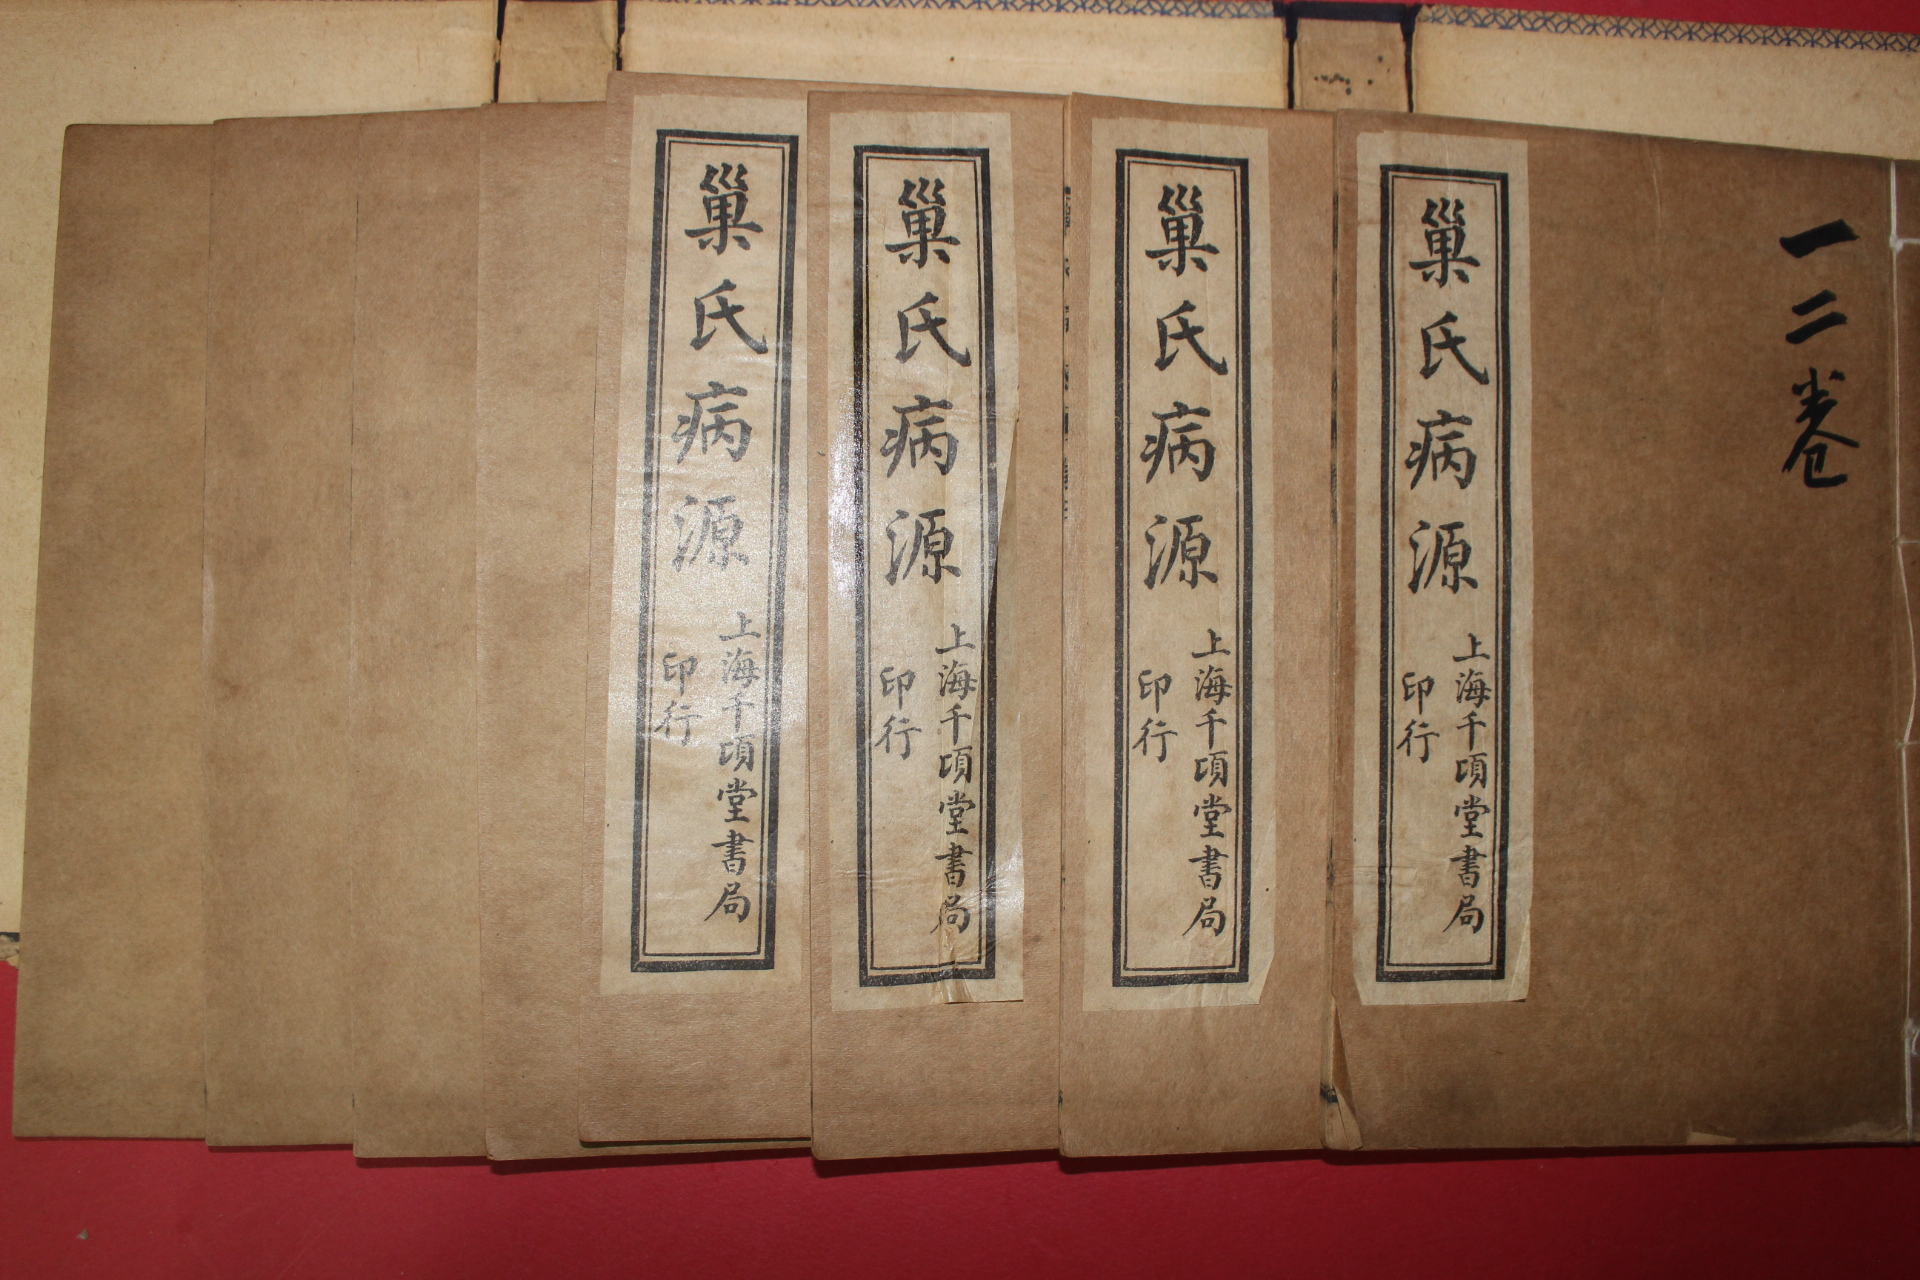 一二卷
巢氏病源
上海千頃堂書局
印行
巢氏病源
上海千頃堂書局
印行
巢氏病源
上海千頃堂書局
印行
巢氏病源
上海千頃堂書局
印行